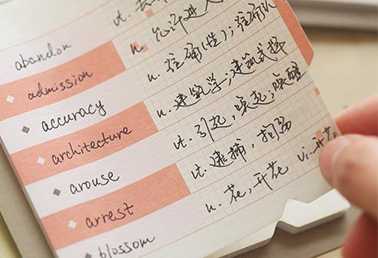 abandon vt.
admission n. 允许进入
accuracy n. 准确(性);精确
architecture n. 建筑学;建筑式样
arouse vt. 引起,唤起;唤醒
arrest vt. 逮捕,拘留
blossom n. 花,开花 vi. 开花